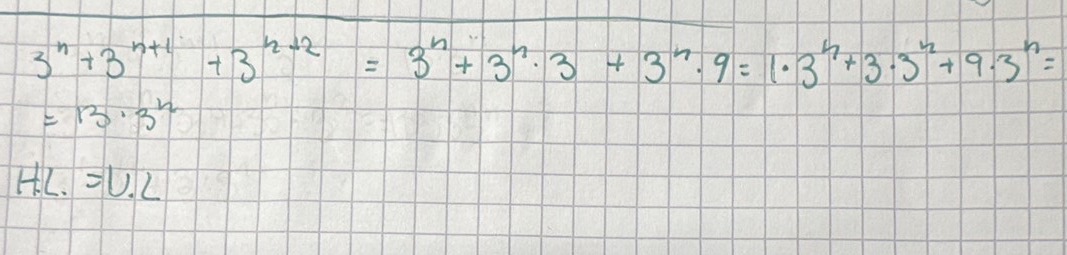 3ⁿ + 3ⁿ⁺¹ + 3ⁿ⁺² = 3ⁿ + 3ⁿ · 3 + 3ⁿ · 9 = 1 · 3ⁿ + 3 · 3ⁿ + 9 · 3ⁿ =
= 13 · 3ⁿ
H.L. = V.L